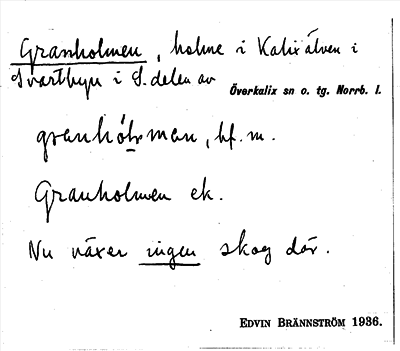 Granholmen, holme i Kalixälven i
Svartbyn i S. delen av
Överkalix sn o. tg. Norrb. l.
granhó̱l̥man, bf. m.
Granholmen ek.
Nu växer ingen skog där.
EDVIN BRÄNNSTRÖM 1936.